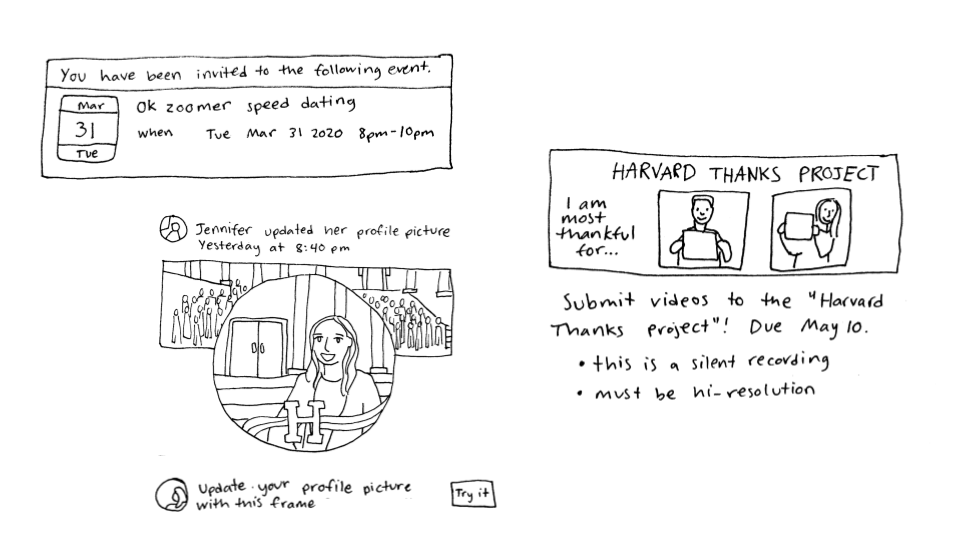 You have been invited to the following event.
Mar
31
Tue
Ok zoomer speed dating
when Tue Mar 31 2020 8pm-10pm
Jennifer updated her profile picture
Yesterday at 8:40 pm
H
Update your profile picture
with this frame
Try it
HARVARD THANKS PROJECT
I am
most
thankful
for...
Submit videos to the "Harvard
Thanks project"! Due May 10.
• this is a silent recording
• must be hi-resolution